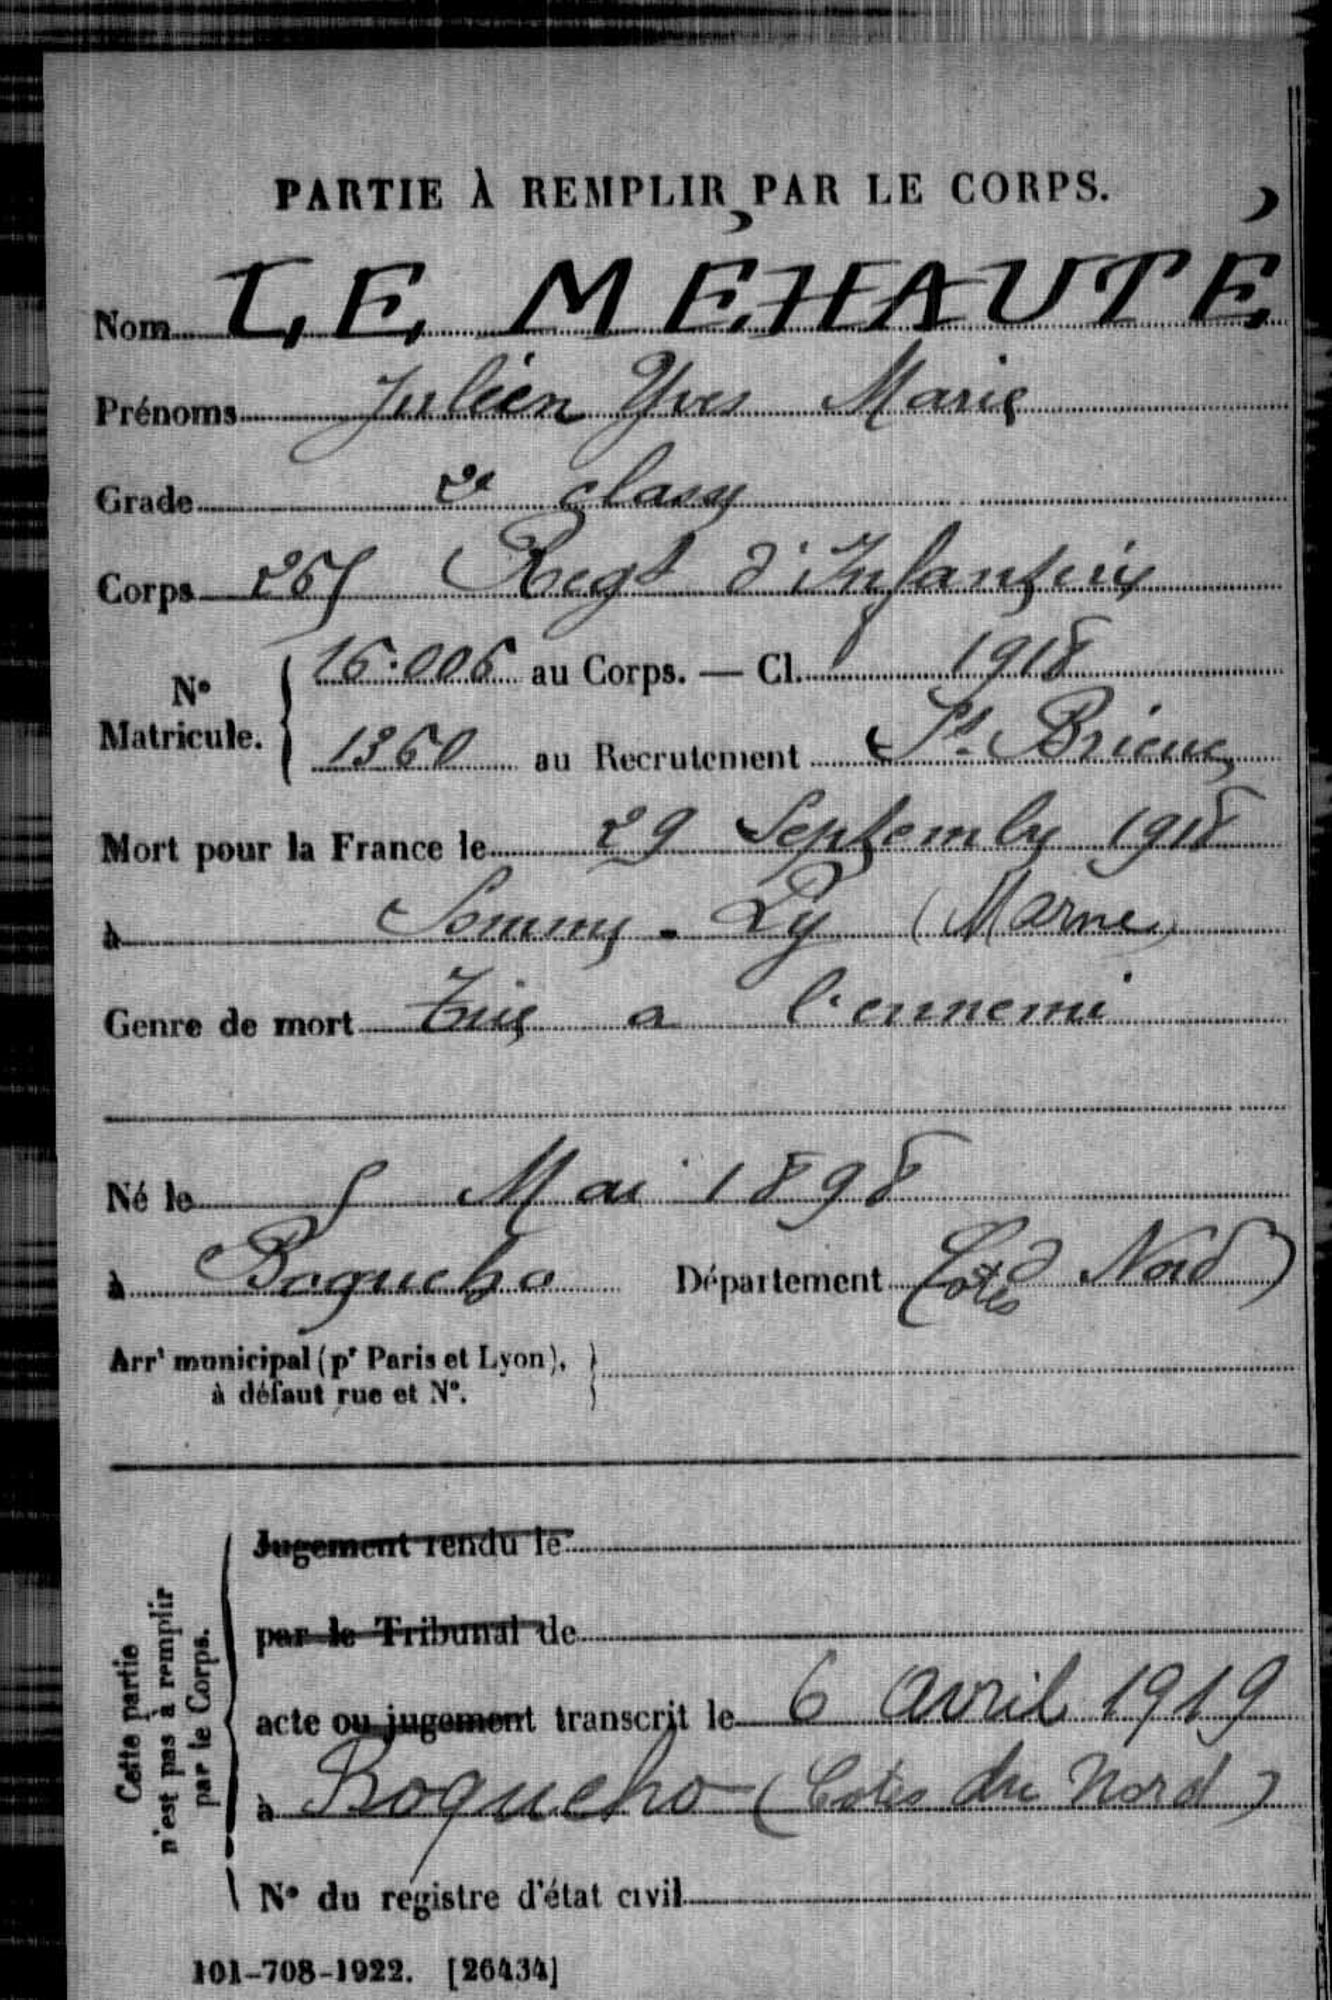 PARTIE À REMPLIR PAR LE CORPS.
Nom LE MÉHAUTÉ
Prénoms Julien Yves Marie
Grade 2e classe
Corps 265 Regt d'Infanterie
No Matricule. { 16.006 au Corps. — Cl. 1918
1360 au Recrutement St. Brieuc
Mort pour la France le 29 Septembre 1918
à Somme-Py (Marne)
Genre de mort Tué a l'ennemi
Né le 5 Mai 1898
à Boqueho Département Cotes d Nord
Arrt municipal (pr Paris et Lyon),
à défaut rue et No.
Cette partie
n'est pas à remplir
par le Corps.
Jugement rendu le
par le Tribunal de
acte ou jugement transcrit le 6 avril 1919
à Boqueho (Cotes du Nord)
No du registre d'état civil
101-708-1922. [26434]